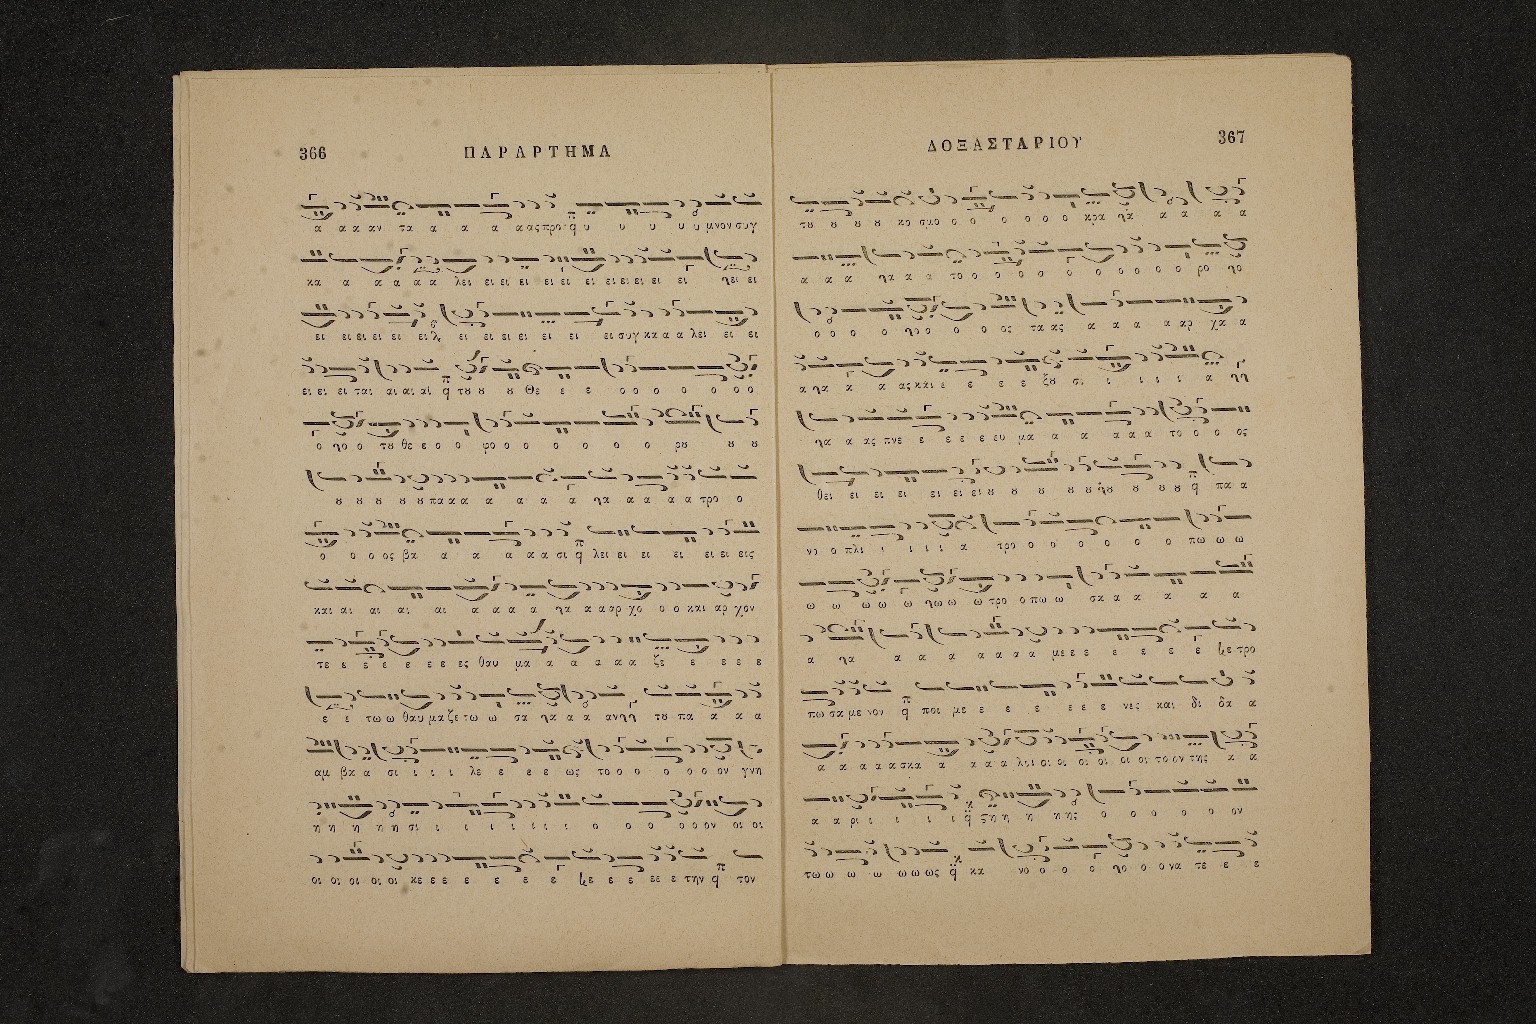 366
ΠΑΡΑΡΤΗΜΑ
α α α αν τα α α α α ας προ q̈ υ υ υ υ υ μνον συγ
κα α α α α α λει ει ει ει ει ει ει ει ει ει ει ει γει ει
ει ει ει ει ει ει ει ει ει ει ει ει ει συγ κα α α λει ει ει
ει ει ει ται αι αι αί q̈ τȣ ȣ ȣ Θε ε ε ο ο ο ο ο ο ο ο
ο γο ο τȣ θε ε ο ο φο ο ο ο ο ο ο ρȣ ȣ ȣ
ȣ ȣ ȣ ȣ ȣ πα α α α α α α γα α α α α τρο ο
ο ο ο ος βα α α α α α α σι q̈ λει ει ει ει ει ει εις
και αι αι αι αι α α α α γα α α αρ χο ο ο και αρ χον
τε ε ε ε ε ε ε ες θαυ μα α α α α α ζε ε ε ε ε
ε ε τω ω θαυ μα ζε τω ω σα γα α α ανγη τȣ πα α α α
αμ βα α σι ι ι ι λε ε ε ε ως το ο ο ο ο ο ον γνη
η η η η η σι ι ι ι ι ι ι ι ο ο ο ο ο ον οι οι
οι οι οι οι οι κε ε ε ε ε ε ε γε ε ε ε ε ε την q̈ τον
ΔΟΞΑΣΤΑΡΙΟΥ
367
τȣ ȣ ȣ ȣ κο σμο ο ο ο ο ο ο ο κρα γα α α α α
α α α γα α α το ο ο ο ο ο ο ο ο ο ο ρο γο
ο ο ο ο γο ο ο ο ος τα ας α α α α αρ χα α
α γα α α ας και ε ε ε ε ξȣ σι ι ι ι ι α γη
γα α ας πνε ε ε ε ε ευ μα α α α α α το ο ο ος
θει ει ει ει ει ει ει ȣ ȣ ȣ ȣ ȣ γȣ ȣ ȣ ȣ q̈ πα α
νο ο πλι ι ι ι ι α τρο ο ο ο ο ο ο πω ω ω
ω ω ω ω ω γω ω ω τρο ο πω ω σκα α α α α α
α γα α α α α α α α με ε ε ε ε ε ε γε τρο
πω σα με νον q̈ ποι με ε ε ε ε ε ε νες και δι δα α
α α α α α σκα α α α α λοι οι οι οι οι οι οι το ον της α α
α α ρι ι ι ι ι q̈ ςη η η ης ο ο ο ο ο ον
τω ω ω ω ω ω ως q̈ κα νο ο ο ο γο ο ο να τε ε ε